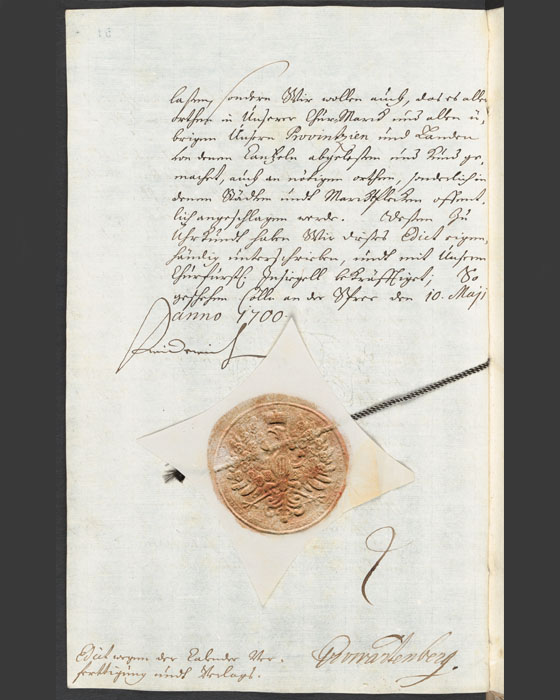 laßen, sondern Wir wollen auch, das es aller
orthen in Unserer Chur-Marck und allen ü-
brigen Unsern Provintzien und Landen
von denen Cantzeln abgelesen und kund ge-
machet, auch an nötigen orthen, sonderlich in
denen Städten undt Marcktflecken offent-
lich angeschlagen werde. Deßen Zu
Uhrkundt haben Wir dieses Edict eigen-
händig unterschrieben, undt mit Unserm
Churfürstl. Insiegell bekräfftiget; So
geschehen Cölln an der Spree den 10. Maji
anno 1700.
Friderich
Edict wegen der Calender Ver-
fertigung undt Verlags.
Gvwartenberg.